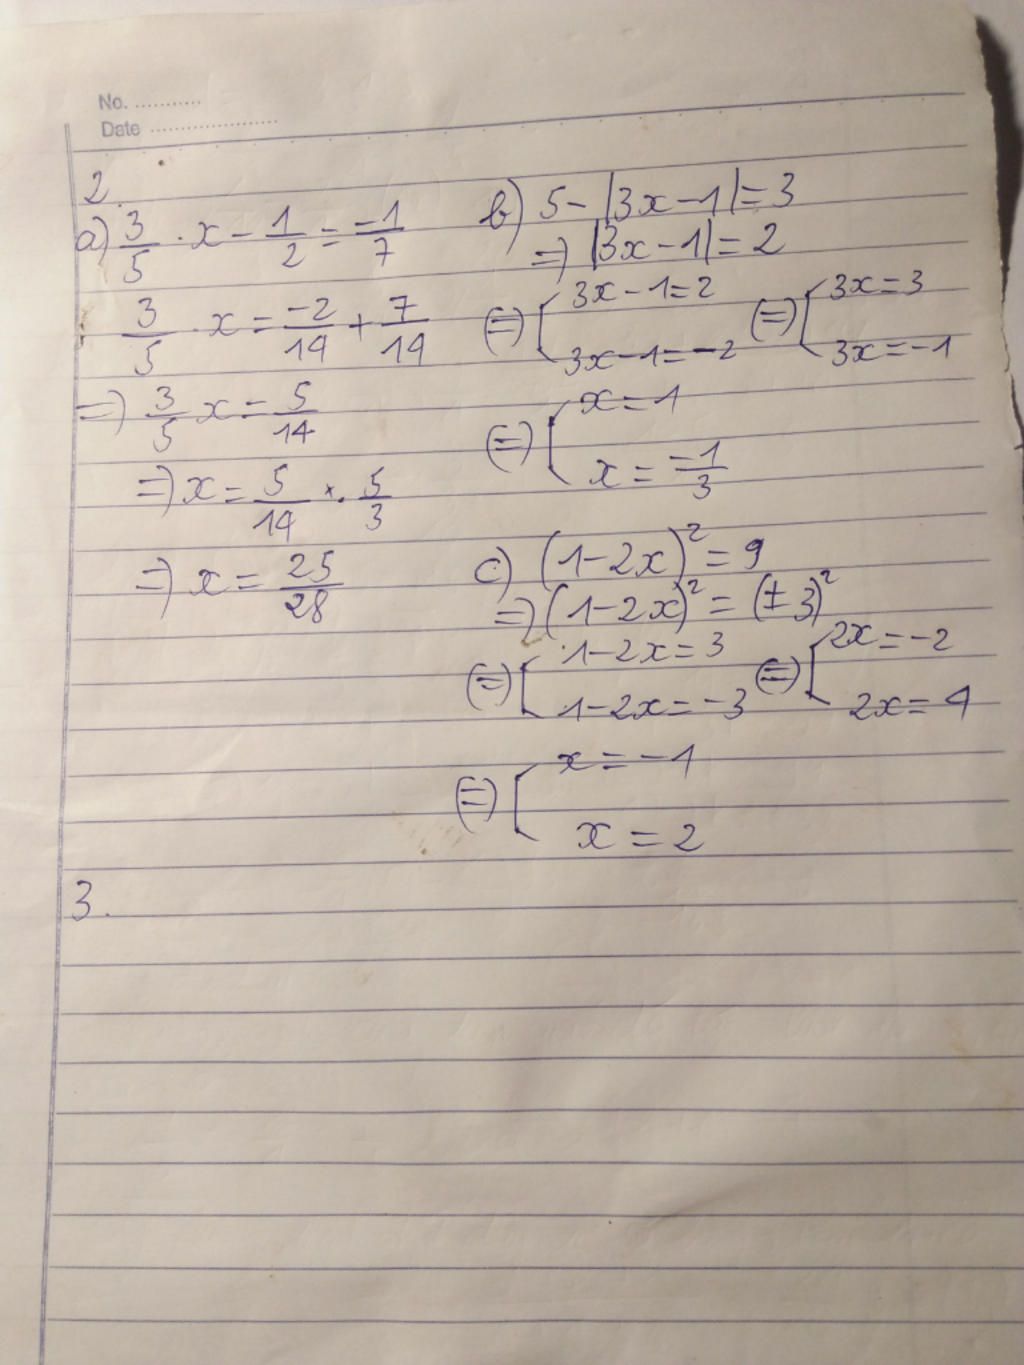 No. ...........
Date ....................
2.
a) 3/5 . x - 1/2 = -1/7
3/5 . x = -2/14 + 7/14
=) 3/5 x = 5/14
=) x = 5/14 . 5/3
=) x = 25/28
b) 5 - |3x - 1| = 3
=) |3x - 1| = 2
(=) [ 3x - 1 = 2 (=) [ 3x = 3
3x - 1 = -2 3x = -1
(=) [ x = 1
x = -1/3
c) (1 - 2x)² = 9
=) (1 - 2x)² = (± 3)²
(=) [ 1 - 2x = 3 (=) [ 2x = -2
1 - 2x = -3 2x = 4
(=) [ x = -1
x = 2
3.